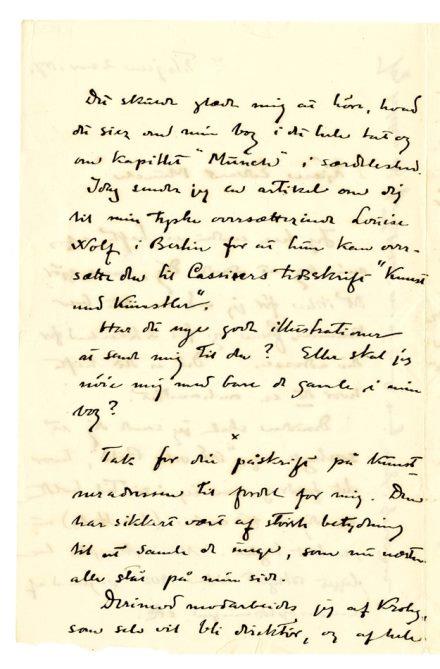 Det skulde glæde mig at höre, hvad
du sier om min bog i det hele tat og
om kapitlet "Munch" i særdeleshed.
Idag sender jeg en artikel om dig
til min tyske oversætterinde Louise
Wolf i Berlin for at hun kan over-
sætte den til Cassirers tidsskrift "Kunst
und Künstler".
Har du nye gode illustrationer
at sende mig til den? Eller skal jeg
nöie mig med bare de gamle i min
bog?
x
Tak for din påskrift på Kunst
neradressen til fordel for mig. Den
har sikkert vært af störste betydning
til at samle de unge, som nu næsten
alle står på min side.
Derimod modarbeides jeg af Krohg,
som selv vil bli direktör, og af hele